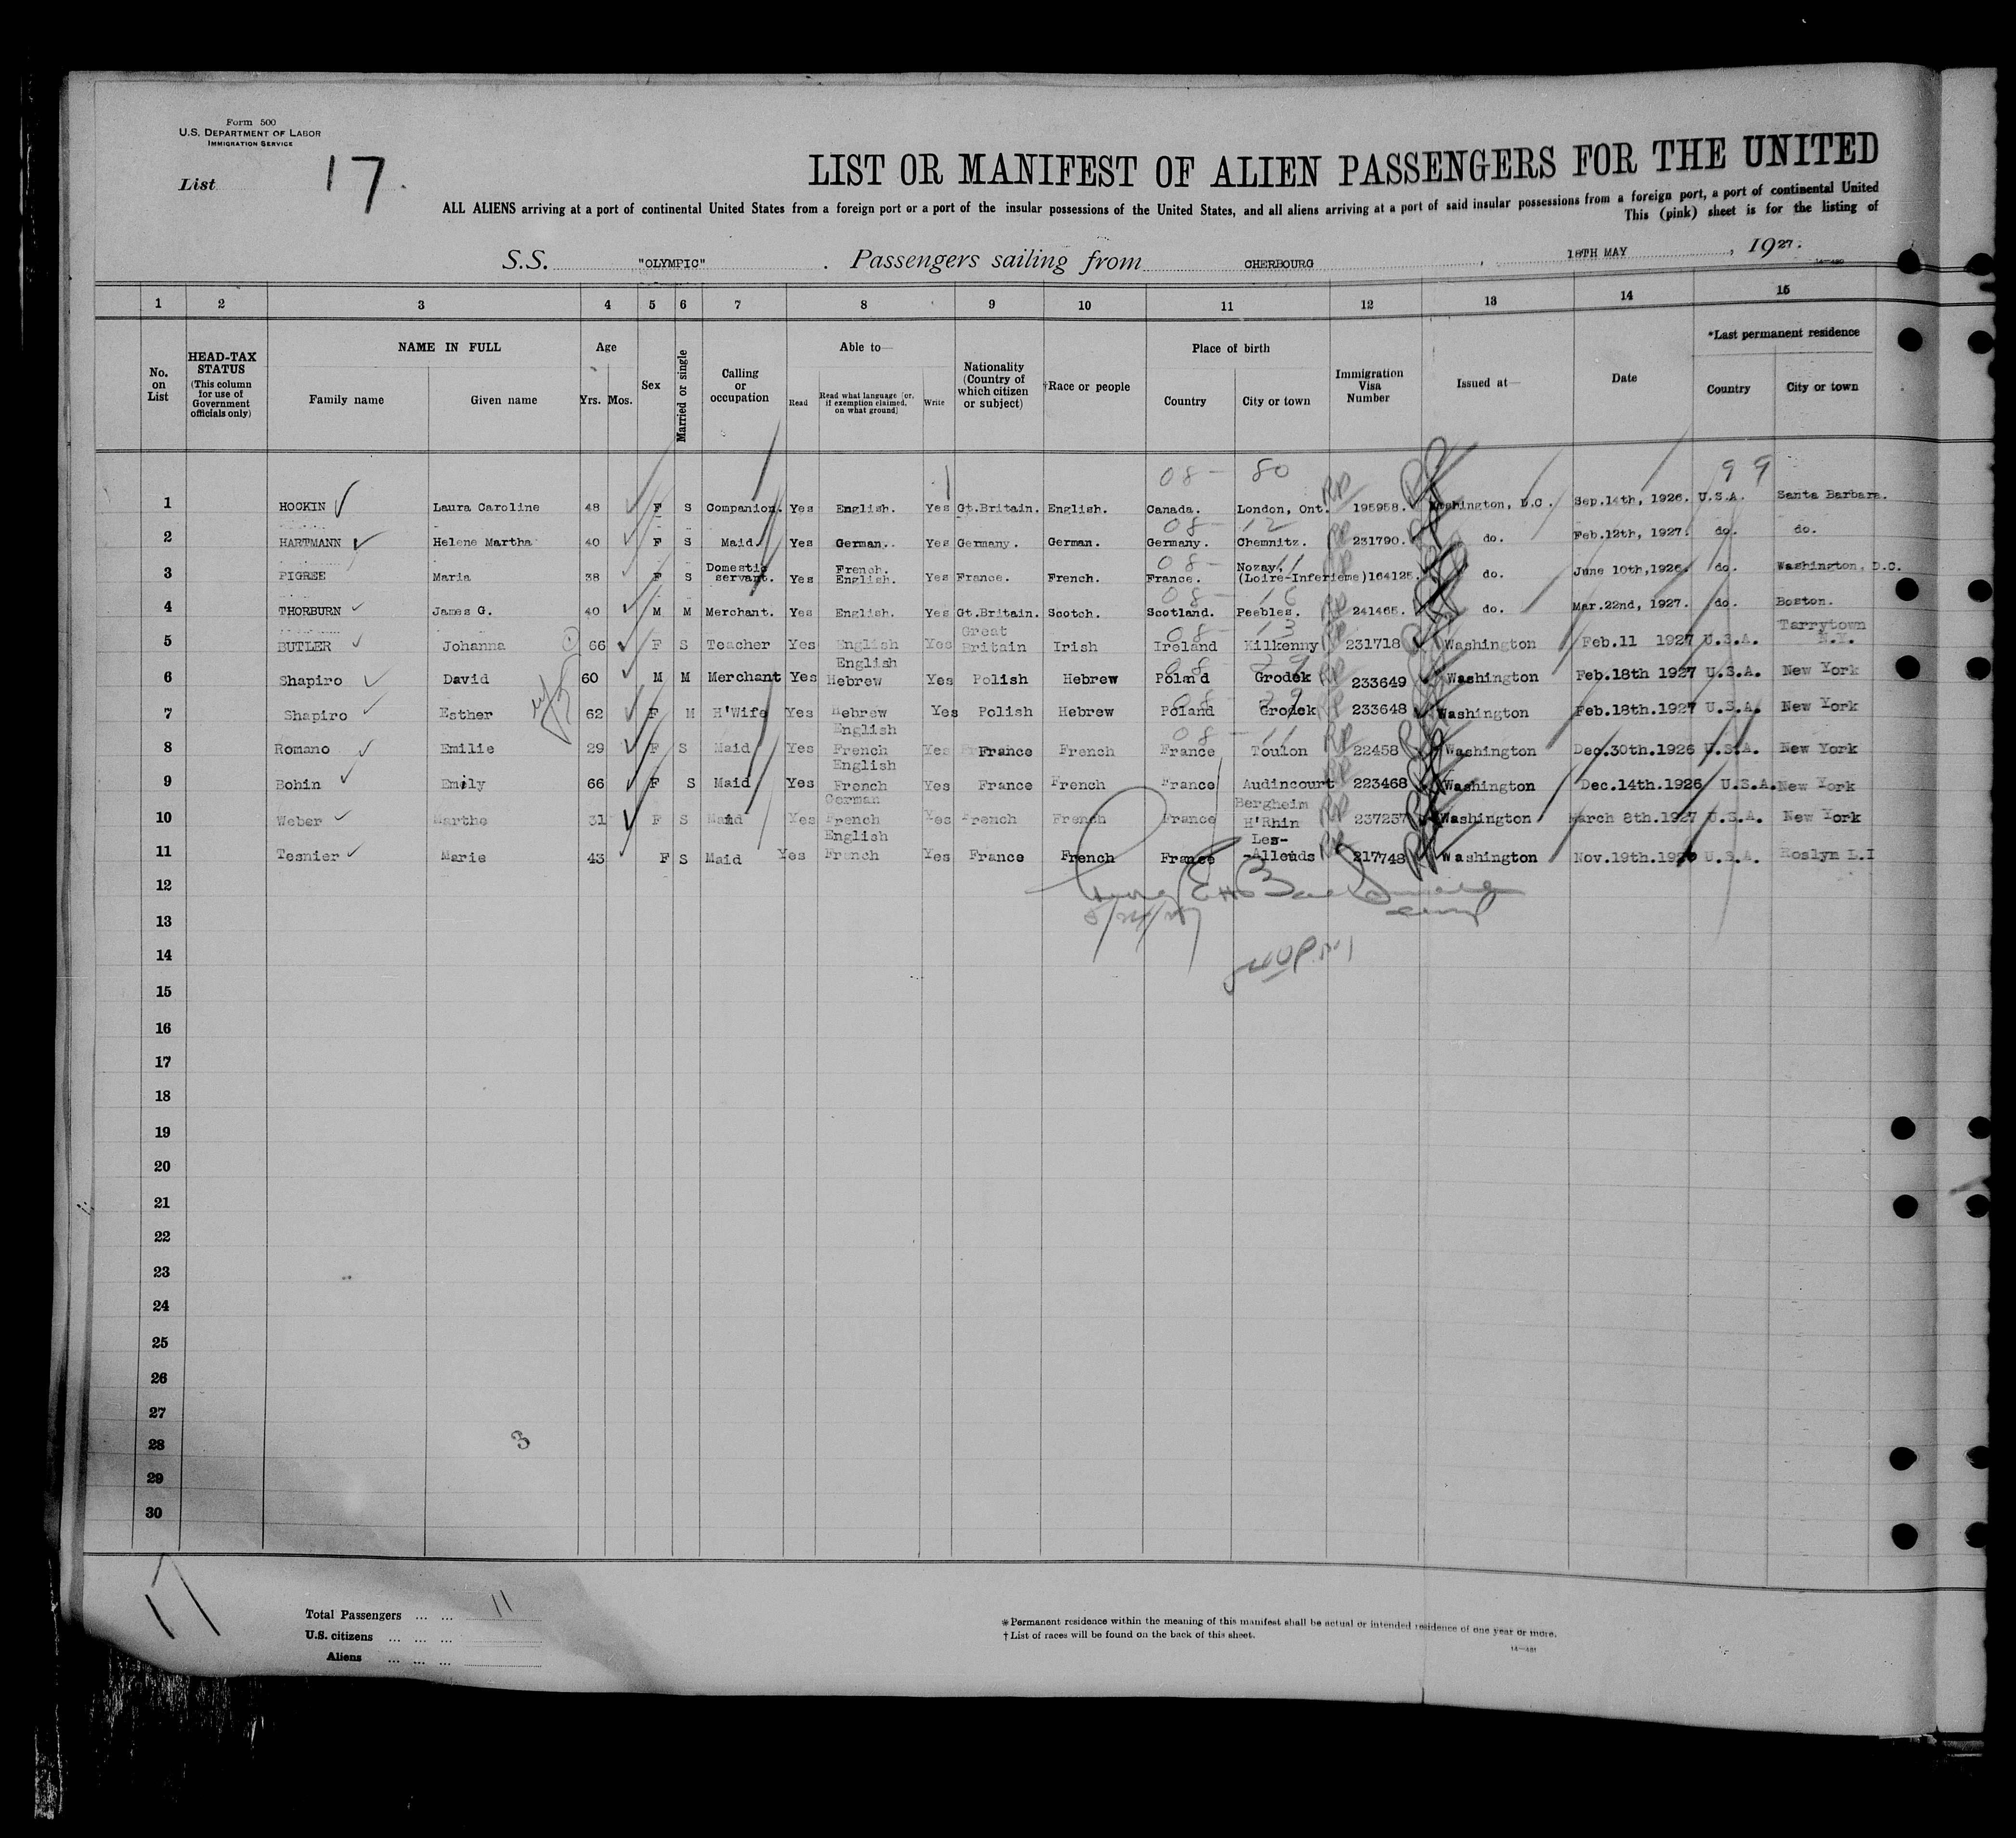 Form 500
U.S. DEPARTMENT OF LABOR
IMMIGRATION SERVICE
List 17.
LIST OR MANIFEST OF ALIEN PASSENGERS FOR THE UNITED
ALL ALIENS arriving at a port of continental United States from a foreign port or a port of the insular possessions of the United States, and all aliens arriving at a port of said insular possessions from a foreign port, a port of continental United
This (pink) sheet is for the listing of
S.S. "OLYMPIC" . Passengers sailing from CHERBOURG , 18TH MAY , 1927.
1 2 3 4 5 6 7 8 9 10 11 12 13 14 15
No. on List
HEAD-TAX STATUS (This column for use of Government officials only)
NAME IN FULL Family name Given name
Age Yrs. Mos.
Sex
Married or single
Calling or occupation
Able to— Read Read what language [or, if exemption claimed, on what ground] Write
Nationality (Country of which citizen or subject)
†Race or people
Place of birth Country City or town
Immigration Visa Number
Issued at—
Date
*Last permanent residence Country City or town
08- 80 99
1 HOCKIN Laura Caroline 48 F S Companion. Yes English. Yes Gt.Britain. English. Canada. London, Ont. 195958. Washington, D.C. Sep.14th, 1926. U.S.A. Santa Barbara.
08- 12
2 HARTMANN Helene Martha 40 F S Maid. Yes German. Yes Germany. German. Germany. Chemnitz. 231790. do. Feb.12th, 1927. do. do.
08- 11
3 PIGREE Maria 38 F S Domestic servant. Yes French. English. Yes France. French. France. Nozay. (Loire-Inferieme) 164125. do. June 10th,1926. do. Washington, D.C.
08- 16
4 THORBURN James G. 40 M M Merchant. Yes English. Yes Gt.Britain. Scotch. Scotland. Peebles. 241465. do. Mar.22nd, 1927. do. Boston.
08- 13
5 BUTLER Johanna 66 F S Teacher Yes English Yes Great Britain Irish Ireland Kilkenny 231718 Washington Feb.11 1927 U.S.A. Tarrytown N.Y.
08- 29
6 Shapiro David 60 M M Merchant Yes English Hebrew Yes Polish Hebrew Poland Grodek 233649 Washington Feb.18th 1927 U.S.A. New York
08- 29
7 Shapiro Esther 62 F M H'Wife Yes Hebrew Yes Polish Hebrew Poland Grodek 233648 Washington Feb.18th.1927 U.S.A. New York
08- 11
8 Romano Emilie 29 F S Maid Yes English French Yes France French France Toulon 22458 Washington Dec.30th.1926 U.S.A. New York
9 Bohin Emily 66 F S Maid Yes English French Yes France French France Audincourt 223468 Washington Dec.14th.1926 U.S.A. New York
10 Weber Marthe 31 F S Maid Yes German French Yes French French France Bergheim H'Rhin 237257 Washington March 8th.1927 U.S.A. New York
11 Tesnier Marie 43 F S Maid Yes English French Yes France French France Les- -Alleuds 217748 Washington Nov.19th.1926 U.S.A. Roslyn L.I
12
13
14
15
16
17
18
19
20
21
22
23
24
25
26
27
28
29
30
3
17
Total Passengers ... ... 11
U.S. citizens ... ... ...
Aliens ... ... ...
*Permanent residence within the meaning of this manifest shall be actual or intended residence of one year or more.
†List of races will be found on the back of this sheet.